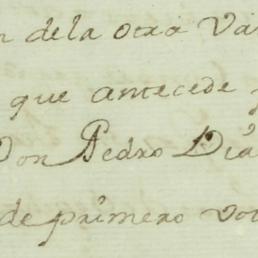 n dela otra Va
que antecede
Don Pedro Día
de primero vot